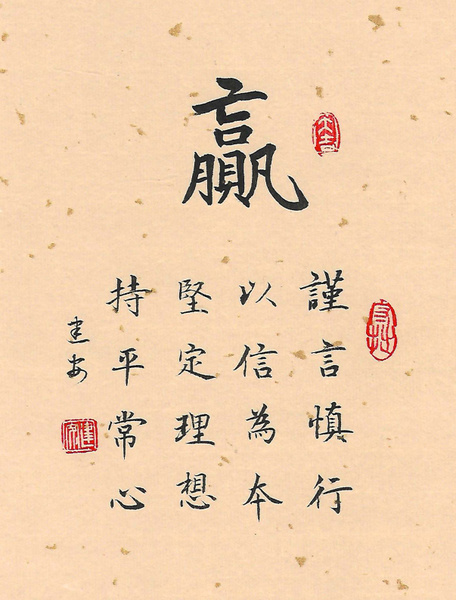 贏
謹言慎行
以信為本
堅定理想
持平常心
建安